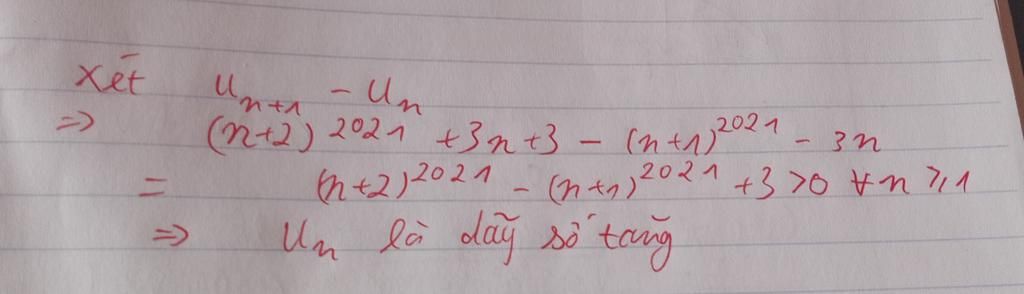 Xét u_{n+1} - u_n
=> (n+2)^{2021} + 3n + 3 - (n+1)^{2021} - 3n
= (n+2)^{2021} - (n+1)^{2021} + 3 > 0 ∀n ⩾ 1
=> u_n là dãy số tăng